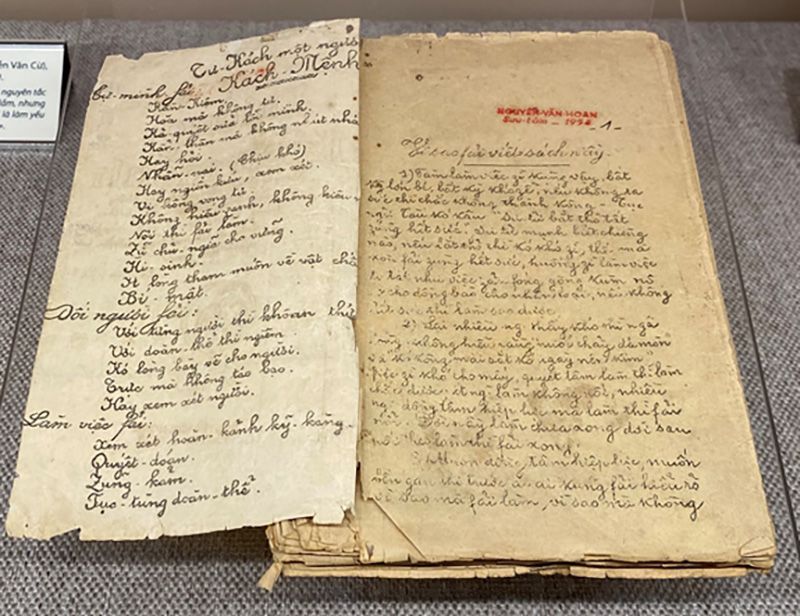 ễn Văn Cừ),
nguyên tắc
lắm, nhưng
là làm yếu
Tư-Kách một người
Kách-Mệnh
Tự-mình fải:
Kần-Kiệm.
Hòa mà không tư.
Kả-quyết sửa lỗi mình.
Kẩn-thận mà không nhút nhát
Hay hỏi.
Nhẫn-nại. (Chịu khó)
Hay nghiên kứu, xem xét.
Vị công vong tư.
Không hiếu zanh, không kiêu
Nói thì fải làm.
Zữ chủ-nghĩa cho vững.
Hi-sinh.
Ít lòng tham muốn về vật chất
Bí-mật.
Đối người fải:
Với từng người thì khoan thứ
Với đoàn-thể thì nghiêm
Kó lòng bày vẽ cho người.
Trực mà không táo bạo.
Hay xem xét người.
Làm việc fải:
Xem xét hoàn-kảnh kỹ-kàng.
Quyết-đoán.
Zũng-kảm.
Fục-tùng đoàn-thể.
NGUYỄN-VĂN-HOAN
Sưu-tầm-1954
-1-
Vì sao fải viết sách nầy.
1) Fàm làm việc zì kũng vậy, bất
kỳ lớn bé, bất kỳ khó zễ, nếu không ra
sức thì chắc không thành kông. Tục
ngữ Tàu kó kâu "Sư tử bắt thỏ tất
zùng hết sức". Sư tử mạnh biết chừng
nào, nếu bắt thỏ thì kó khó zì, thế mà
kòn fải zùng hết sức, huống zì làm việc
to tát như việc zải-fóng gông kùm nô
cho đồng bào, cho nhân loại, nếu không
hết sức thì làm sao được.
2) Lại nhiều ng thấy khó thì ngã
lòng, không hiểu rằng "nước chảy đá mòn"
và "kó kông mài sắt kó ngày nên kim".
việc zì khó cho mấy, quyết tâm làm thì làm
được, ít ng làm không nổi, nhiều
ng đồng tâm hiệp lực mà làm thì fải
nổi. Đời nầy làm chưa xong đời sau
nối theo làm thì fải xong.
3) Muốn được tâm hiệp lực, muốn
bền gan thì trước ai ai kũng fải hiểu rõ
vì sao mà fải làm, vì sao mà không